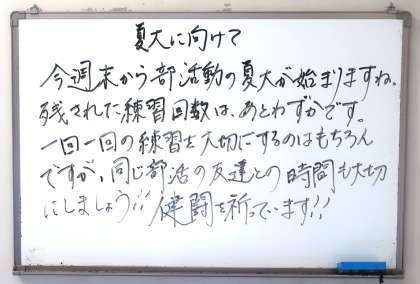 夏大に向けて
今週末から部活動の夏大が始まりますね。
残された練習回数は、あとわずかです。
一回一回の練習を大切にするのはもちろん
ですが、同じ部活の友達との時間も大切
にしましょう!! 健闘を祈っています!!